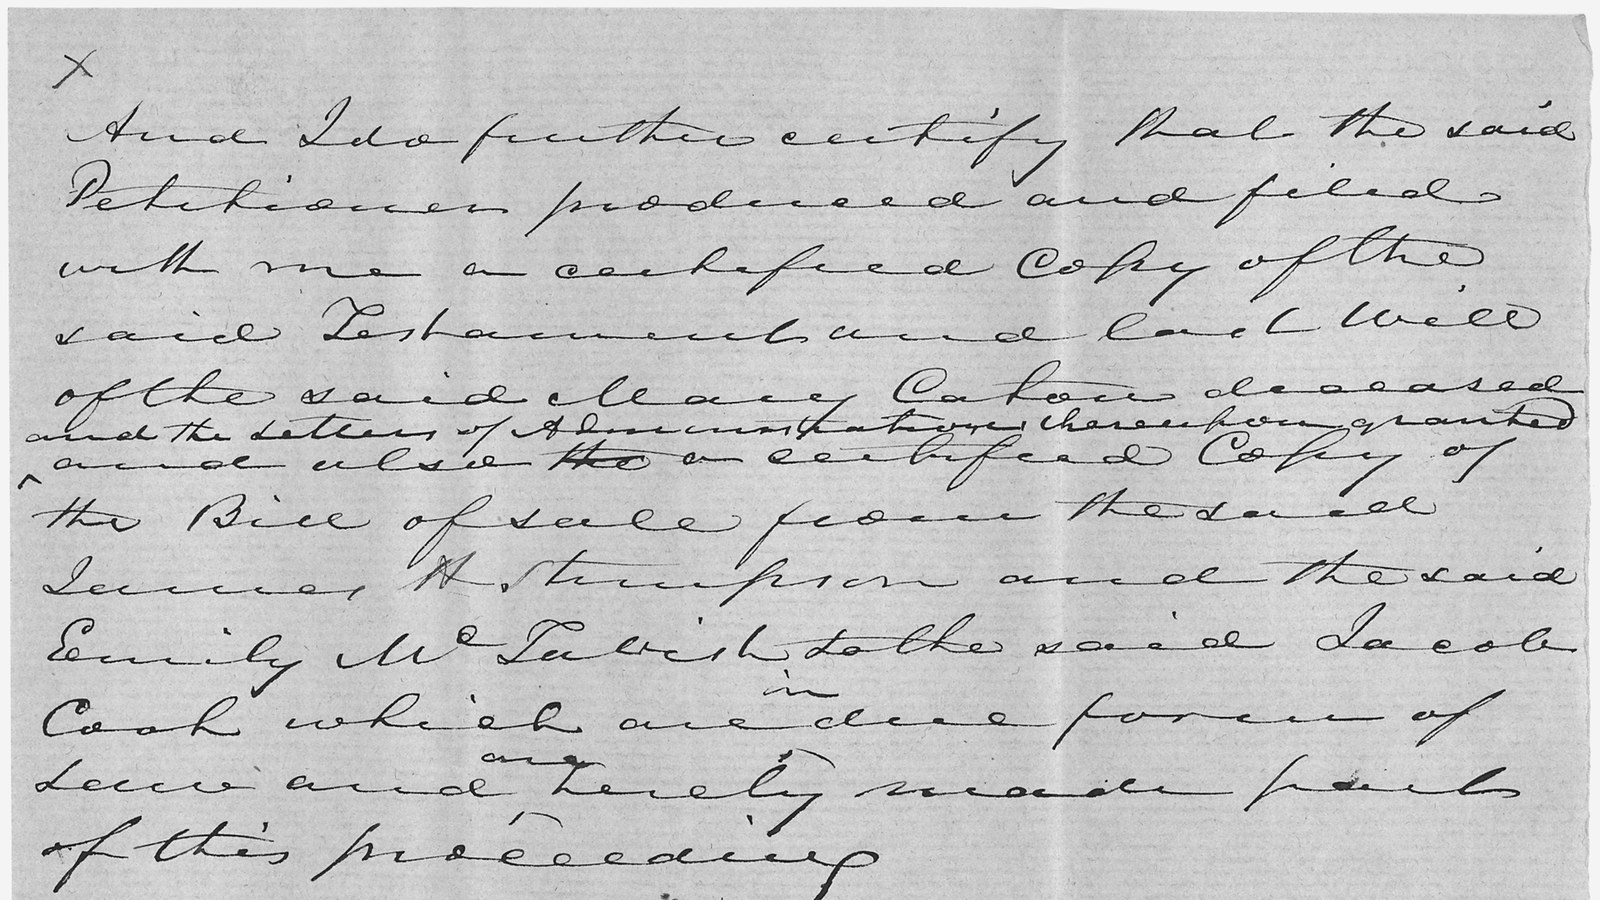 X
And I do further certify that the said
Petitioner produced and filed
with me a certified Copy of the
said Testament and last Will
of the said Mary Caton deceased
and the Letters of Administration thereupon granted
^ and also the a certified Copy of
the Bill of sale from the said
James H Stimpson and the said
Emily McTavish to the said Jacob
in
Cook which are due form of
are
law and hereby made part
of this proceeding